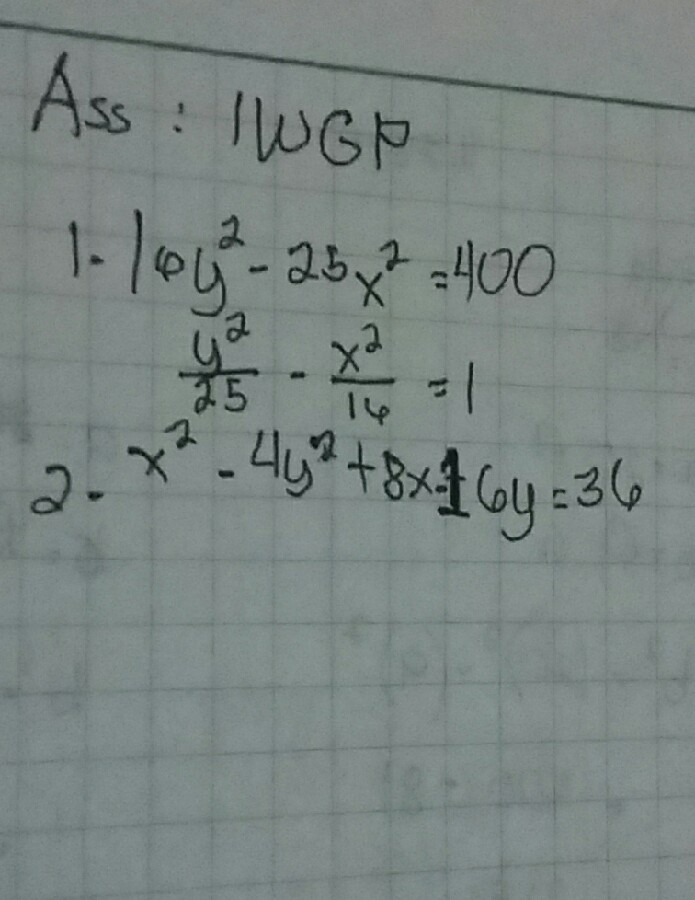 Ass : 1WGP
1. 16y² - 25x² = 400
y²/25 - x²/16 = 1
2. x² - 4y² + 8x - 16y = 36